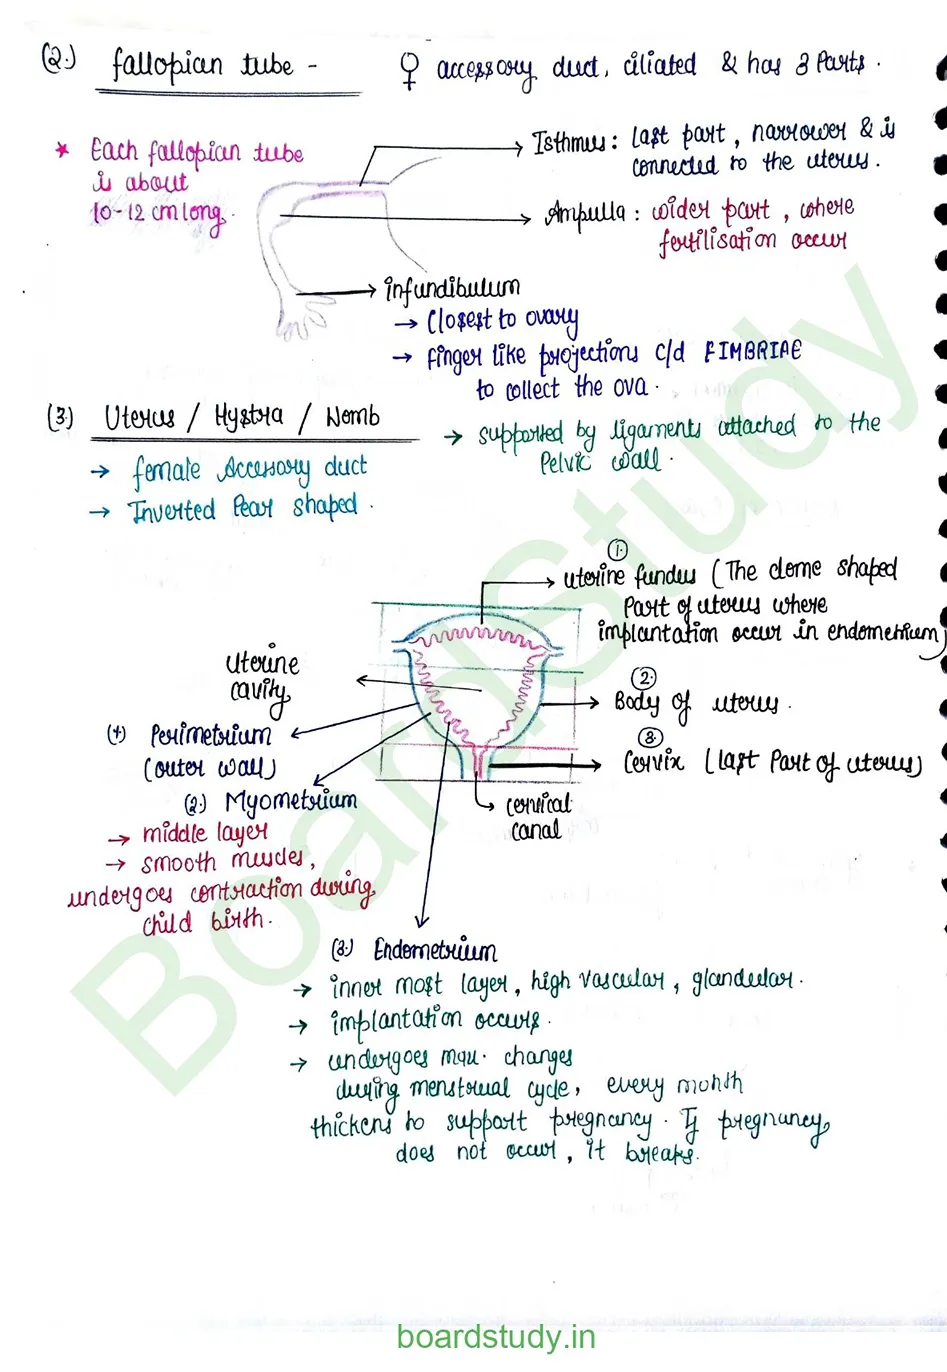 (2.) fallopian tube - ♀ accessory duct, ciliated & has 3 Parts.
* Each fallopian tube
is about
10-12 cm long.
→ Isthmus: last part, narrower & is
connected to the uterus.
→ Ampulla: wider part, where
fertilisation occur
→ infundibulum
→ Closest to ovary
→ finger like projections c/d FIMBRIAE
to collect the ova.
(3.) Uterus / Hystra / Womb
→ female Accessory duct
→ Inverted Pear shaped.
→ supported by ligaments attached to the
Pelvic wall.
①
→ uterine fundus (The dome shaped
Part of uterus where
implantation occur in endometrium)
uterine
cavity
②
→ Body of uterus.
③
→ Cervix (last Part of uterus)
cervical
canal
(1) Perimetrium
(outer wall)
(2.) Myometrium
→ middle layer
→ smooth muscles,
undergoes contraction during
child birth.
(3.) Endometrium
→ inner most layer, high vascular, glandular.
→ implantation occurs.
→ undergoes changes
during menstrual cycle, every month
thickens to support pregnancy. If pregnancy
does not occur, it breaks.
BoardStudy
boardstudy.in